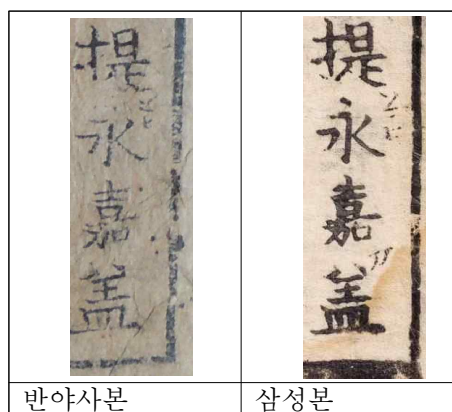 提永嘉盖
提永嘉盖
반야사본
삼성본